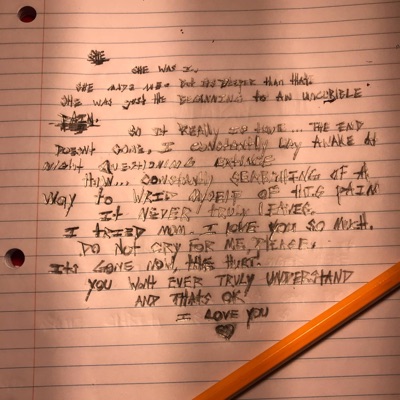 SHE
SHE WAS I.
SHE MADE ME BUT ITS DEEPER THAN THAT.
SHE WAS JUST THE BEGINNING TO AN UNCURIBLE
PAIN.
SO IT REALLY IS TRUE... THE END
DOESNT COME. I CONSTANTLY LAY AWAKE AT
NIGHT QUESTIONING
CONSTANTLY SEARCHING OF A
WAY TO WRID MYSELF OF THIS PAIN
IT NEVER TRULY LEAVES.
I TRIED MOM. I LOVE YOU SO MUCH.
DO NOT CRY FOR ME, PLEASE.
ITS GONE NOW, THIS HURT.
YOU WONT EVER TRULY UNDERSTAND
AND THATS OK
I LOVE YOU